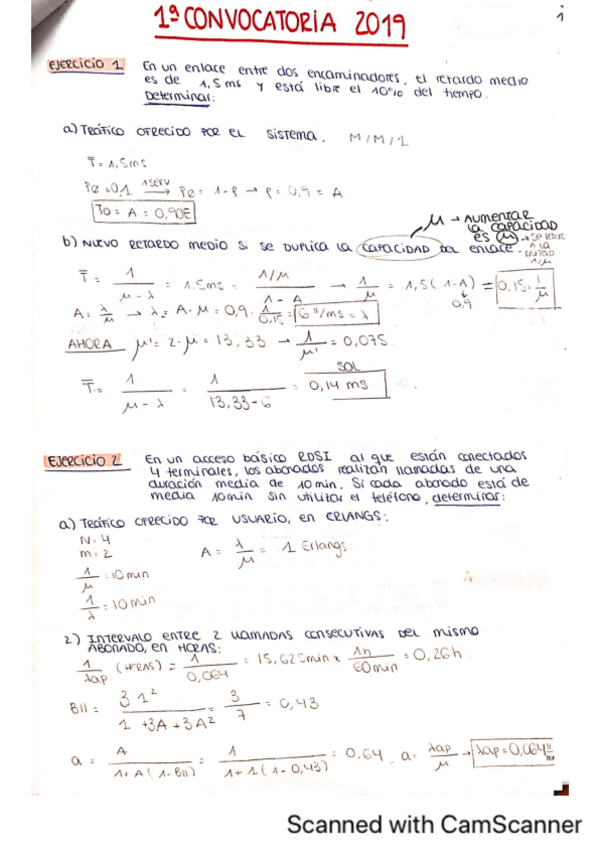 1ª CONVOCATORIA 2019
i
EJERCICIO 1 En un enlace entre dos encaminadores, el retardo medio
es de 1,5ms y está libre el 10% del tiempo.
Determinar:
a) TRÁFICO OFRECIDO POR EL SISTEMA. M/M/1
T = 1,5ms
Pe = 0,1 1SERV → Pe = 1-ρ → ρ = 0,9 = A
To = A = 0,90E
μ → AUMENTAR
LA CAPACIDAD
ES μ → SE REDUCE
A LA
MITAD
1/μ
b) NUEVO RETARDO MEDIO SI SE DUPLICA LA CAPACIDAD DEL ENLACE.
T = 1 / (μ - λ) = 1,5ms = (1/μ) / (1 - A) → 1/μ = 1,5(1-A) = 0,15 = 1/μ
0,9
A = λ/μ → λ = A·μ = 0,9 · 1/0,15 = 6 /ms = λ
AHORA μ' = 2·μ = 13,33 → 1/μ' = 0,075
SOL
T = 1 / (μ - λ) = 1 / (13,33 - 6) = 0,14 ms
EJERCICIO 2 En un acceso básico RDSI al que están conectados
4 terminales, los abonados realizan llamadas de una
duración media de 10 min. Si cada abonado está de
media 10min sin utilizar el teléfono, determinar:
a) TRÁFICO OFRECIDO POR USUARIO, EN ERLANGS:
N = 4
m = 2
A = λ/μ = 1 Erlangs
1/μ = 10min
1/λ = 10min
2) INTERVALO ENTRE 2 LLAMADAS CONSECUTIVAS DEL MISMO
ABONADO, EN HORAS:
1/λap (HORAS) = 1/0,064 = 15,625min × 1h/60min = 0,26h
BII = 3 1² / (1 + 3A + 3A²) = 3/7 = 0,43
a = A / (1 + A(1 - BII)) = 1 / (1 + 1(1 - 0,43)) = 0,64, a = λap/μ → λap = 0,064
Scanned with CamScanner